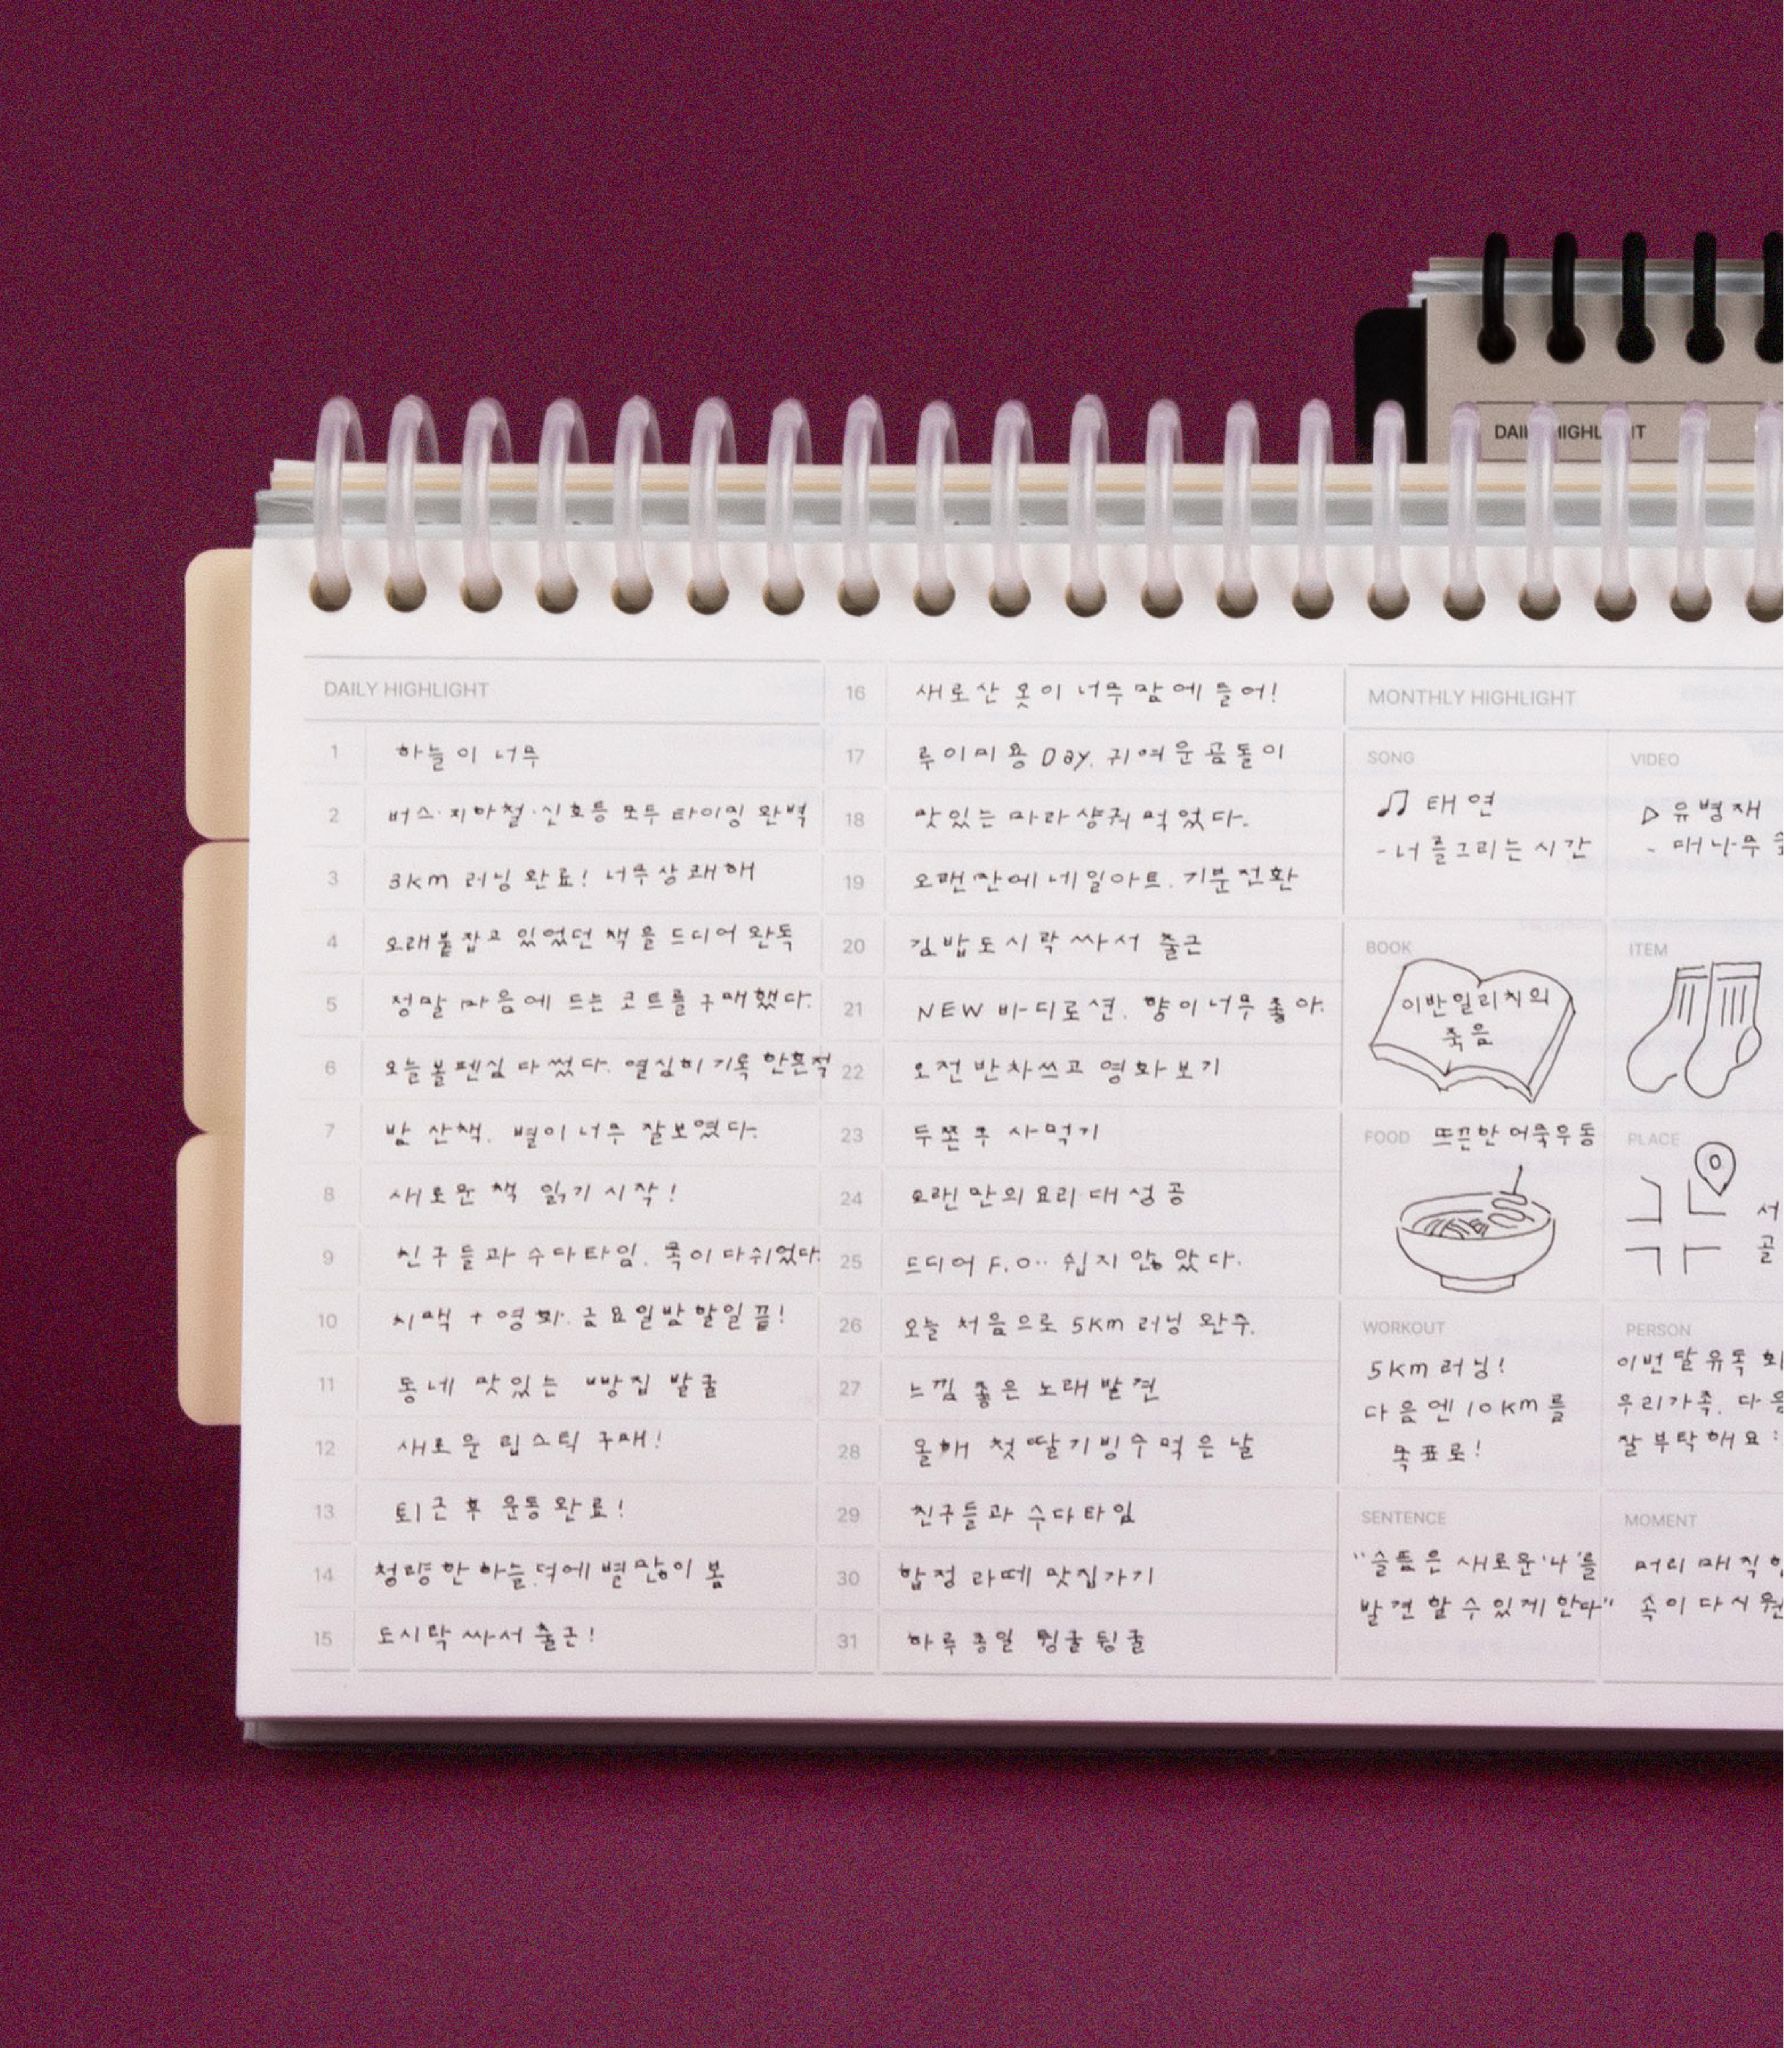 DAILY HIGHLIGHT
DAILY HIGHLIGHT
1 하늘이 너무
2 버스·지하철·신호등 모두 타이밍 완벽
3 3km 러닝 완료! 너무 상쾌해
4 오래 붙잡고 있었던 책을 드디어 완독
5 정말 마음에 드는 코트를 구매했다.
6 오늘 볼펜심 다 썼다. 열심히 기록 한 흔적
7 밤 산책. 별이 너무 잘보였다.
8 새로운 책 읽기 시작!
9 친구들과 수다타임. 목이 다쉬었다.
10 치맥 + 영화. 금요일밤 할일 끝!
11 동네 맛있는 빵집 발굴
12 새로운 립스틱 구매!
13 퇴근 후 운동 완료!
14 청량한 하늘 덕에 별 많이 봄
15 도시락 싸서 출근!
16 새로산 옷이 너무 맘에 들어!
17 루이미용 Day. 귀여운 곰돌이
18 맛있는 마라샹궈 먹었다.
19 오랜만에 네일아트. 기분전환
20 김밥도시락 싸서 출근
21 NEW 바디로션. 향이 너무 좋아.
22 오전 반차쓰고 영화보기
23 두쫀쿠 사먹기
24 오랜만의 요리 대성공
25 드디어 F.O.. 쉽지 않았다.
26 오늘 처음으로 5km 러닝 완주.
27 느낌 좋은 노래 발견
28 올해 첫 딸기빙수 먹은 날
29 친구들과 수다타임
30 합정 라떼 맛집가기
31 하루종일 뒹굴뒹굴
MONTHLY HIGHLIGHT
SONG
태연
- 너를 그리는 시간
VIDEO
유병재
- 대나무
BOOK
이반일리치의
죽음
ITEM
FOOD 뜨끈한 어묵우동
PLACE
서
골
WORKOUT
5km 러닝!
다음엔 10km를
목표로!
PERSON
이번달 유독
우리가족. 다음
잘 부탁해요:
SENTENCE
"슬픔은 새로운 '나'를
발견 할 수 있게 한다"
MOMENT
머리 매직
속이 다 시원